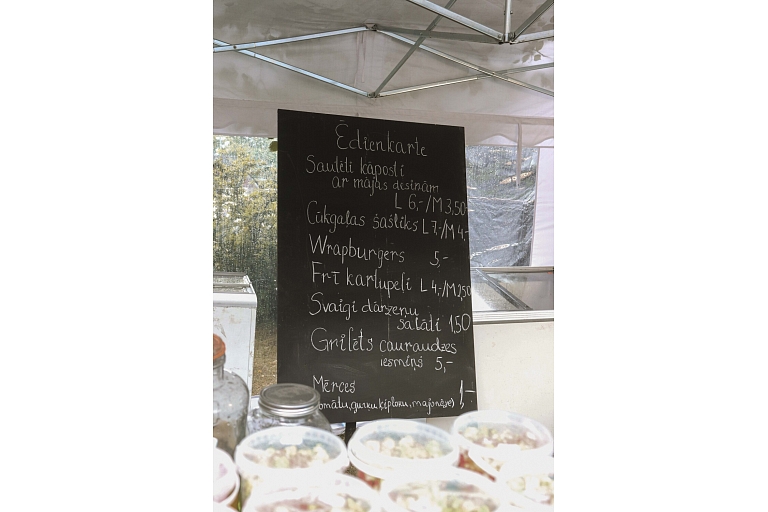 Ēdienkarte
Sautēti kāposti
ar mājas desiņām
L 6,-/M 3,50
Cūkgaļas šašliks L 7,-/M 4,-
Wrapburgers 5,-
Frī kartupeļi L 4,-/M 2,50
Svaigi dārzeņu
salāti 1,50
Grilēts cauraudzes
iesmiņš 5,-
Mērces 1,-
omātu, gurķu, ķiploku, majonēze)